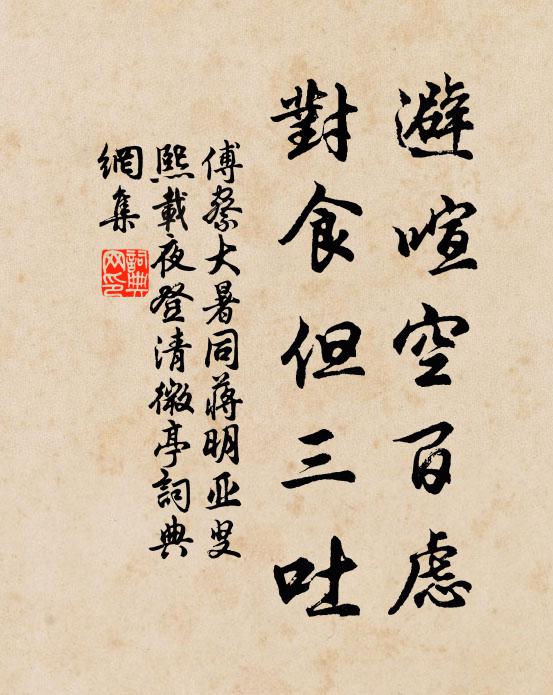 避喧空百慮
對食但三吐
傅察大暑同蔣明亚叟
熙載夜登清微亭詞典
網集
詞典网印